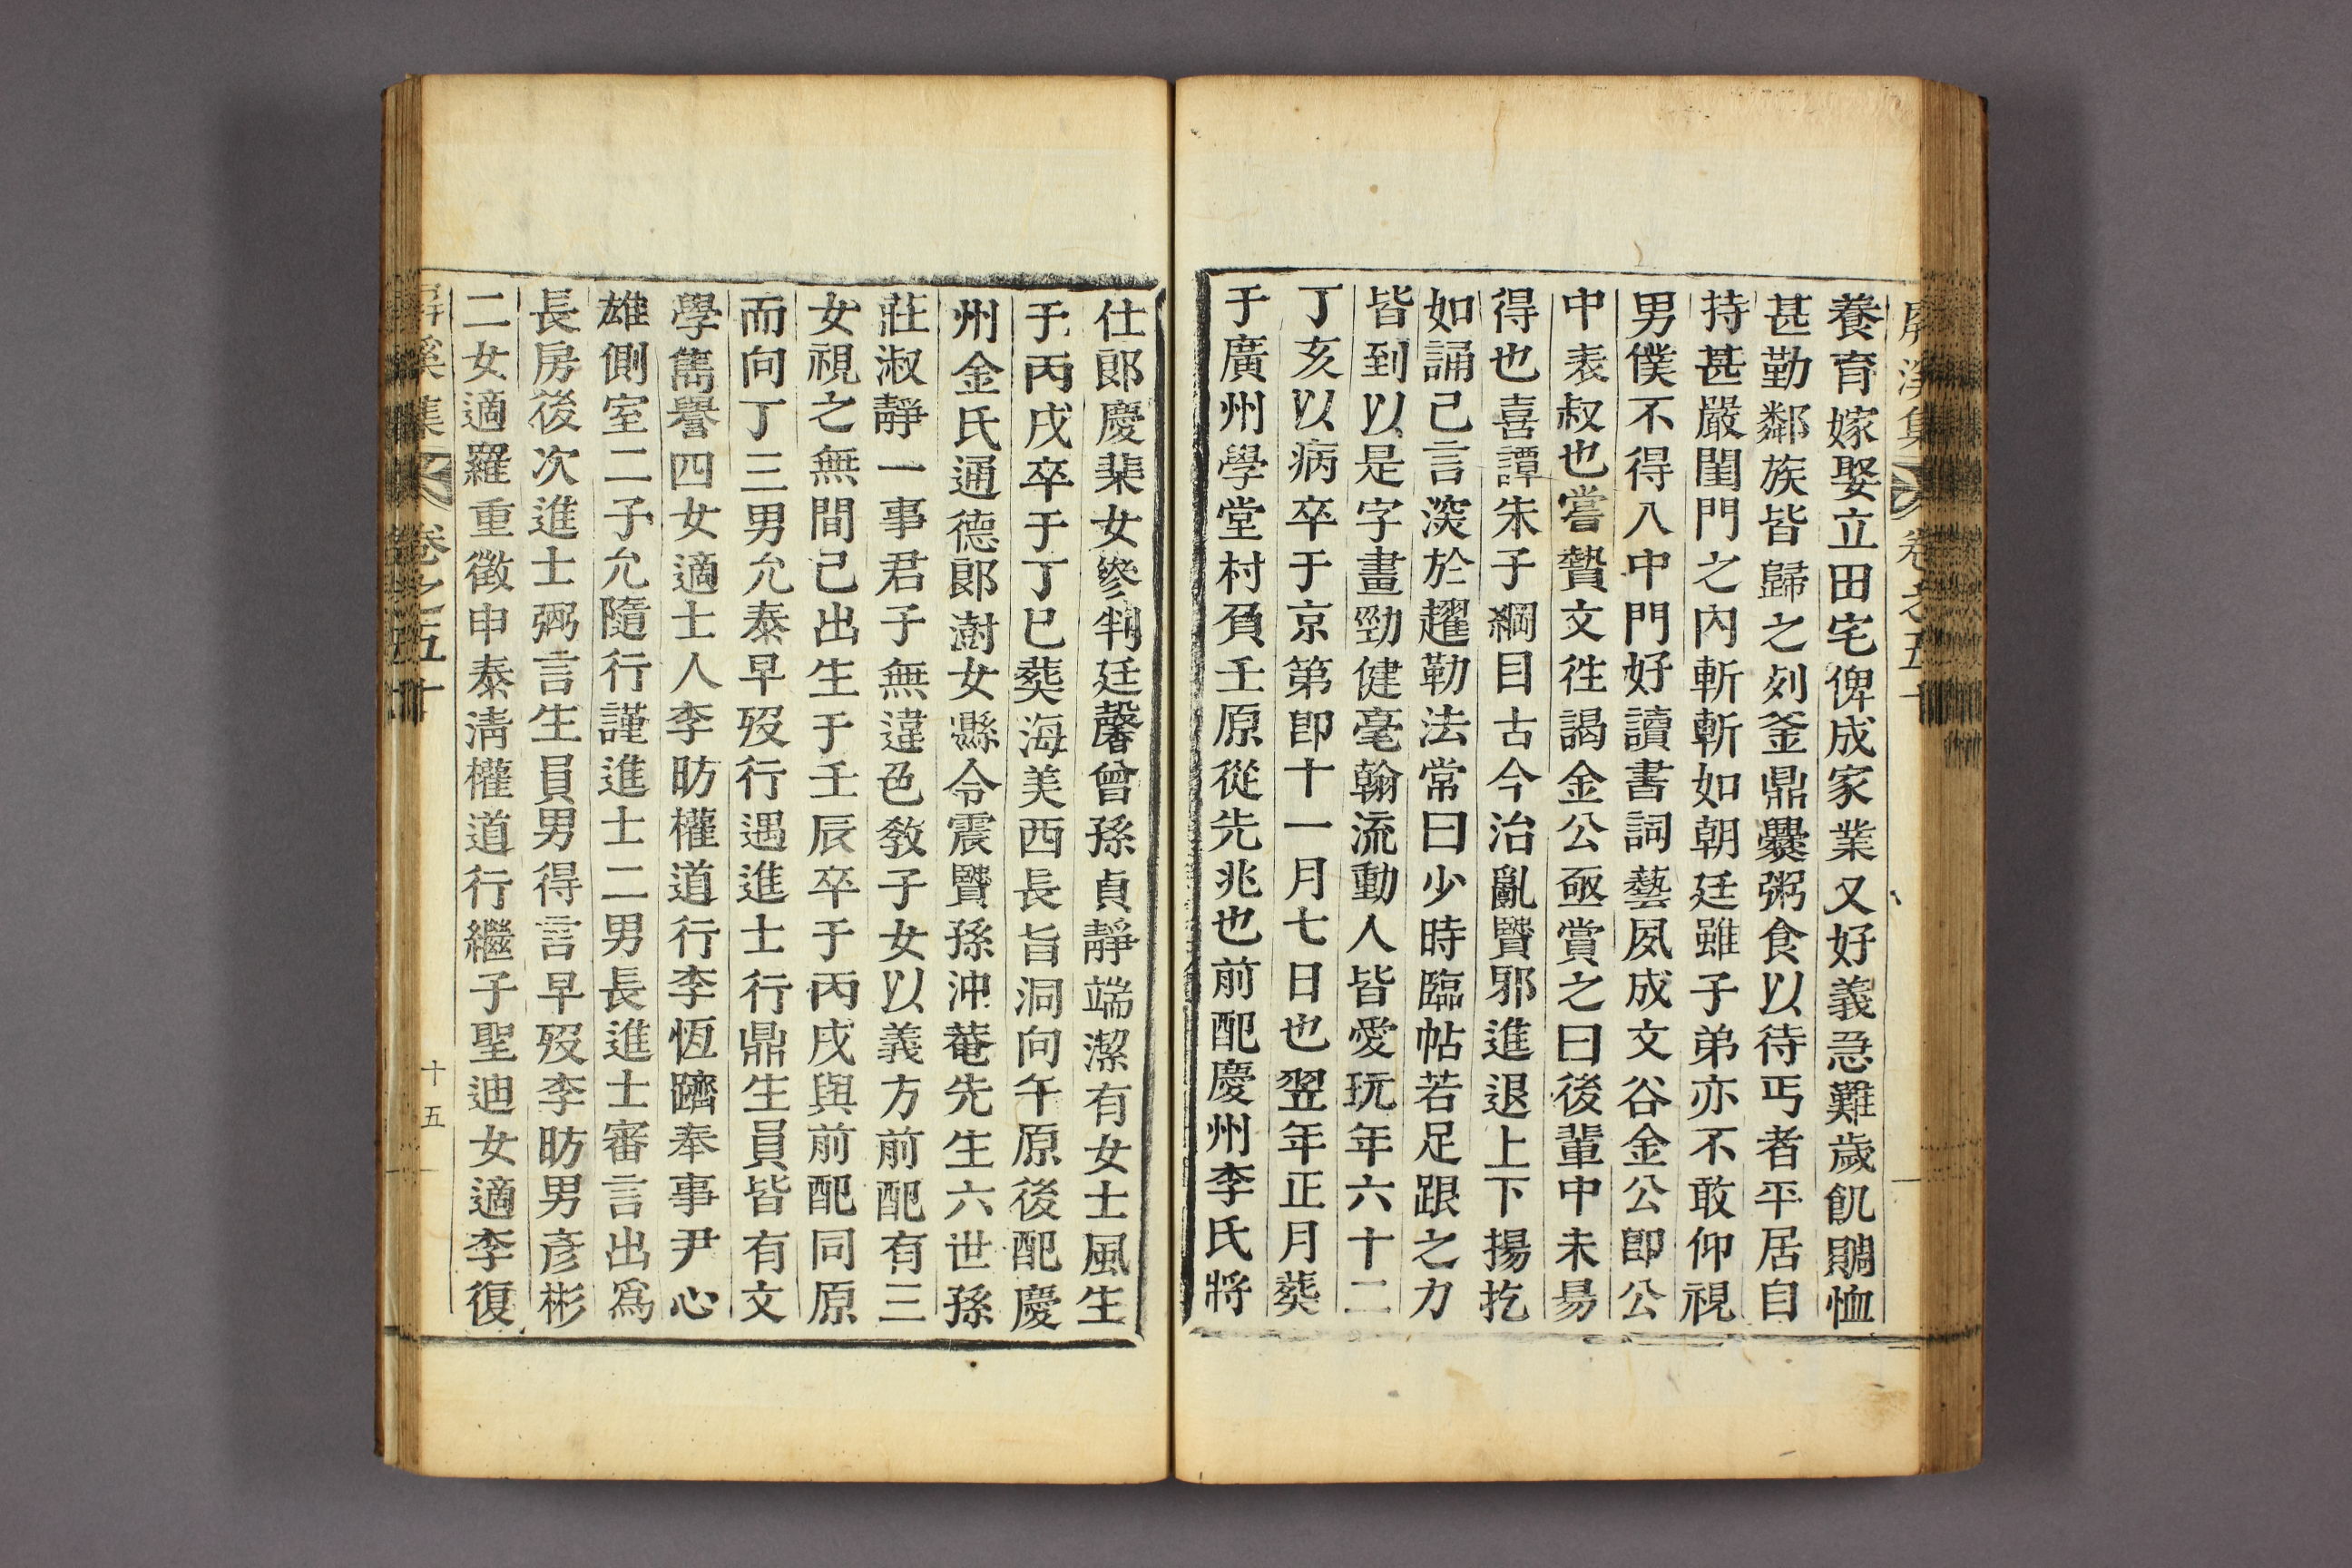 屛溪集 卷之五十
養育嫁娶立田宅俾成家業又好義急難歲飢賙恤
甚勤鄰族皆歸之列釜鼎爨粥食以待丐者平居自
持甚嚴閨門之內斬斬如朝廷雖子弟亦不敢仰視
男僕不得入中門好讀書詞藝夙成文谷金公卽公
中表叔也嘗贄文徃謁金公亟賞之曰後輩中未易
得也喜譚朱子綱目古今治亂賢邪進退上下揚扢
如誦己言深於趯勒法常曰少時臨帖若足跟之力
皆到以是字畫勁健毫翰流動人皆愛玩年六十二
丁亥以病卒于京第卽十一月七日也翌年正月葬
于廣州學堂村負壬原從先兆也前配慶州李氏將
仕郞慶棐女參判廷馨曾孫貞靜端潔有女士風生
于丙戌卒于丁巳葬海美西長旨洞向午原後配慶
州金氏通德郞澍女縣令震賢孫沖菴先生六世孫
莊淑靜一事君子無違色敎子女以義方前配有三
女視之無間己出生于壬辰卒于丙戌與前配同原
而向丁三男允泰早歿行遇進士行鼎生員皆有文
學雋譽四女適士人李昉權道行李恆躋奉事尹心
雄側室二子允隨行謹進士二男長進士審言出爲
長房後次進士弼言生員男得言早歿李昉男彥彬
二女適羅重徵申泰淸權道行繼子聖迪女適李復
屛溪集 卷之五十 十五